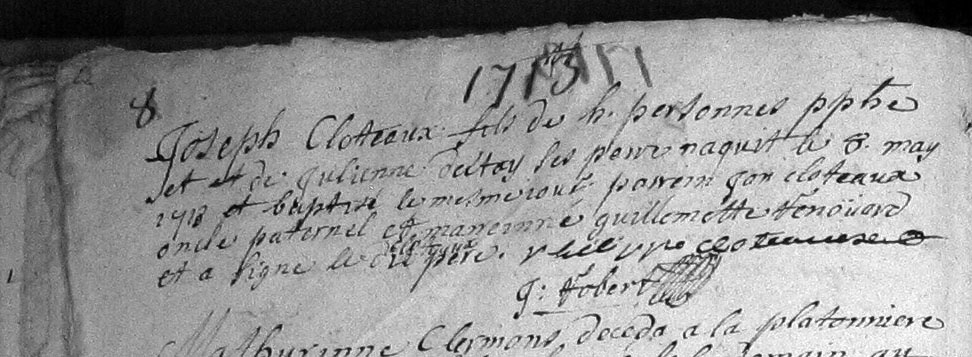 1713
8
Joseph Cloteaux fils de h. personnes pphe
et et de Julienne deltay ses pere naquit le 8. may
1713 et baptisé le mesme jour parrein Jan cloteaux
oncle paternel et mareinne guillemette
et a signe le dit pere. philippe cloteaux
J: Hobert
Mathurinne Clermons deceda a la platonniere